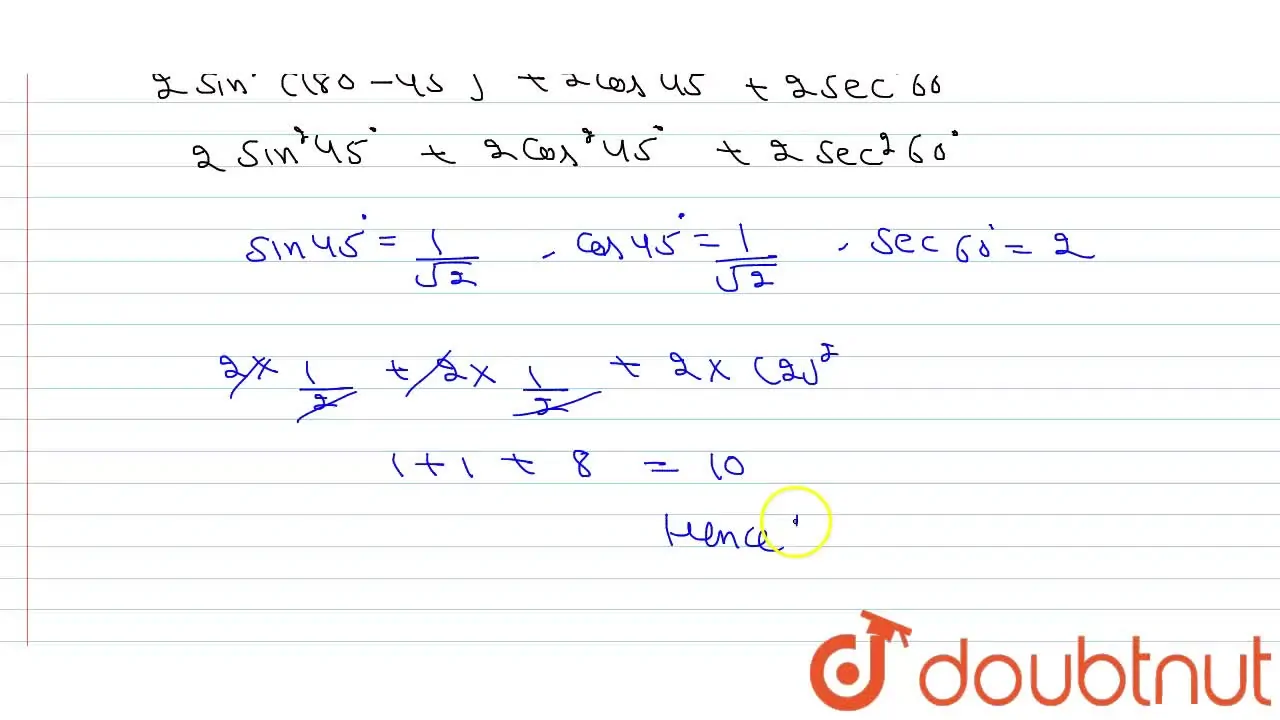 2 sin² (180 - 45°) + 2 cos² 45 + 2 sec² 60
2 sin² 45° + 2 cos² 45° + 2 sec² 60°
sin 45° = 1/√2 , cos 45° = 1/√2 , sec 60° = 2
2 × 1/2 + 2 × 1/2 + 2 × (2)²
1 + 1 + 8 = 10
Hence
doubtnut